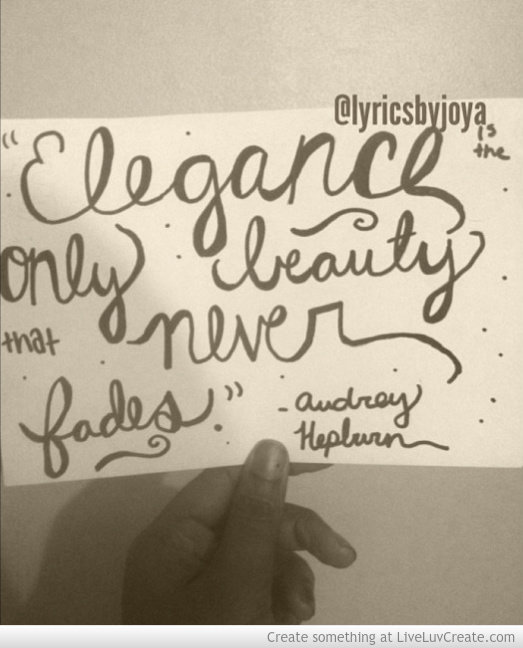 @lyricsbyjoya
“Elegance is the
only beauty
that never
fades.”
- Audrey
Hepburn
Create something at LiveLuvCreate.com